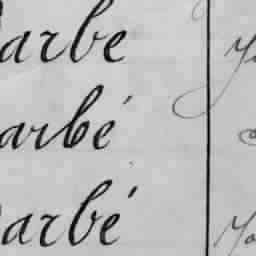 arbe
arbé
arbé